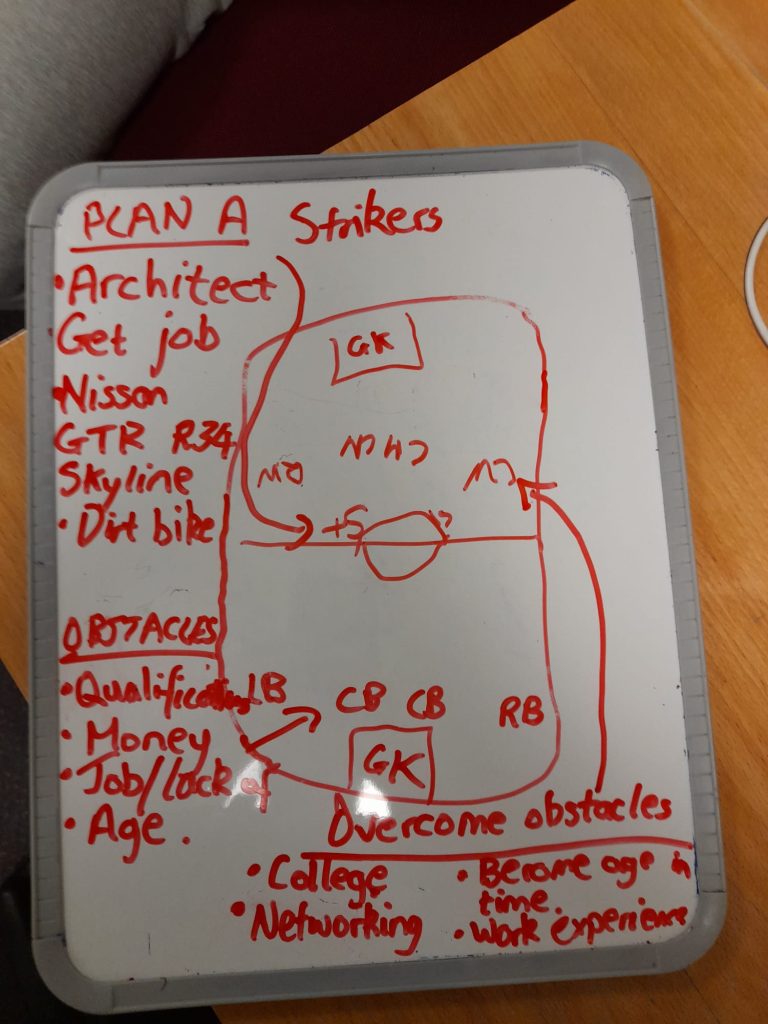 PLAN A Strikers
• Architect
• Get job
• Nisson
GTR R34
Skyline
• Dirt bike
GK
CM CM
RW
LW
+S
OBSTACLES
• Qualifications
• Money
• Job/lack of
• Age.
LB
CB CB
RB
GK
Overcome obstacles
• College
• Networking
• Become age in
time.
• Work experience